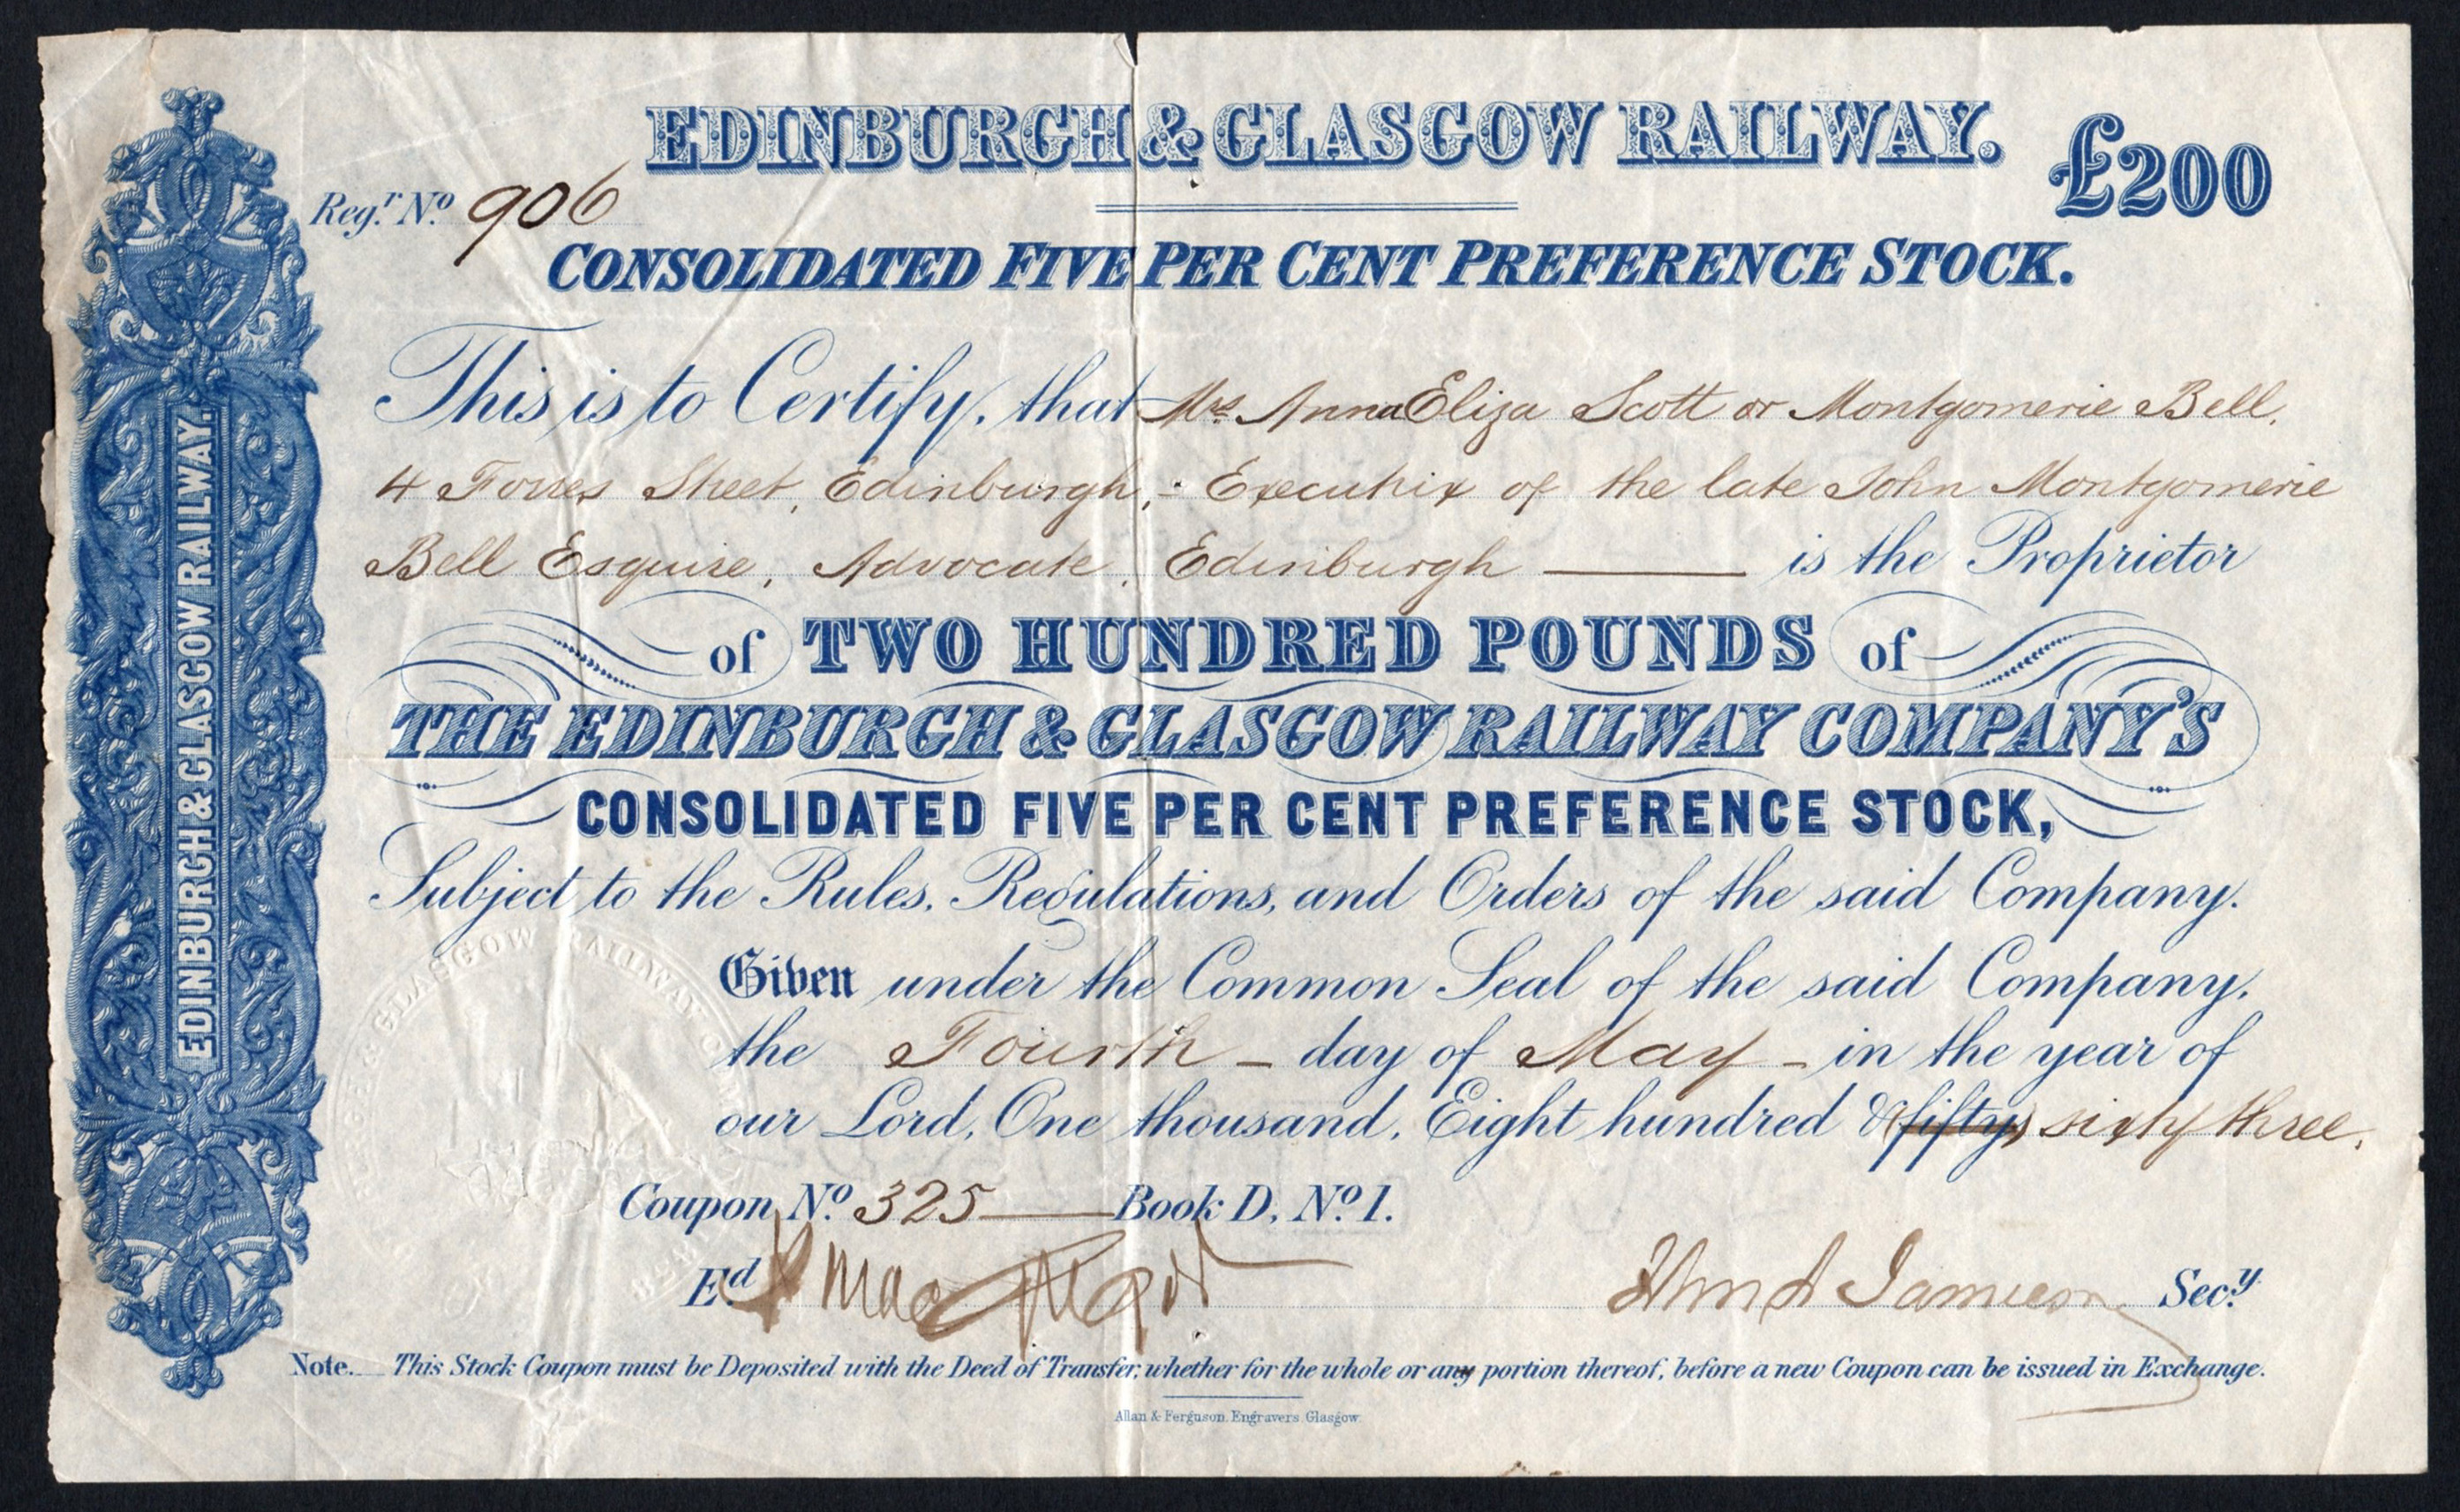 EDINBURGH & GLASGOW RAILWAY.
£200
Regr. No. 906
CONSOLIDATED FIVE PER CENT PREFERENCE STOCK.
This is to Certify, that Mrs Anna Eliza Scott or Montgomerie Bell,
4 Forres Street, Edinburgh, - Executrix of the late John Montgomerie
Bell Esquire, Advocate, Edinburgh —— is the Proprietor
of TWO HUNDRED POUNDS of
THE EDINBURGH & GLASGOW RAILWAY COMPANY'S
CONSOLIDATED FIVE PER CENT PREFERENCE STOCK,
Subject to the Rules, Regulations, and Orders of the said Company.
Given under the Common Seal of the said Company,
the Fourth - day of May - in the year of
our Lord, One thousand, Eight hundred & fifty sixty three.
Coupon No. 325 —— Book D, No. 1.
Ed.
John Jamieson Secy.
Note. This Stock Coupon must be Deposited with the Deed of Transfer, whether for the whole or any portion thereof, before a new Coupon can be issued in Exchange.
Allan & Ferguson, Engravers, Glasgow.
EDINBURGH & GLASGOW RAILWAY.
& GLASGOW RAILWAY